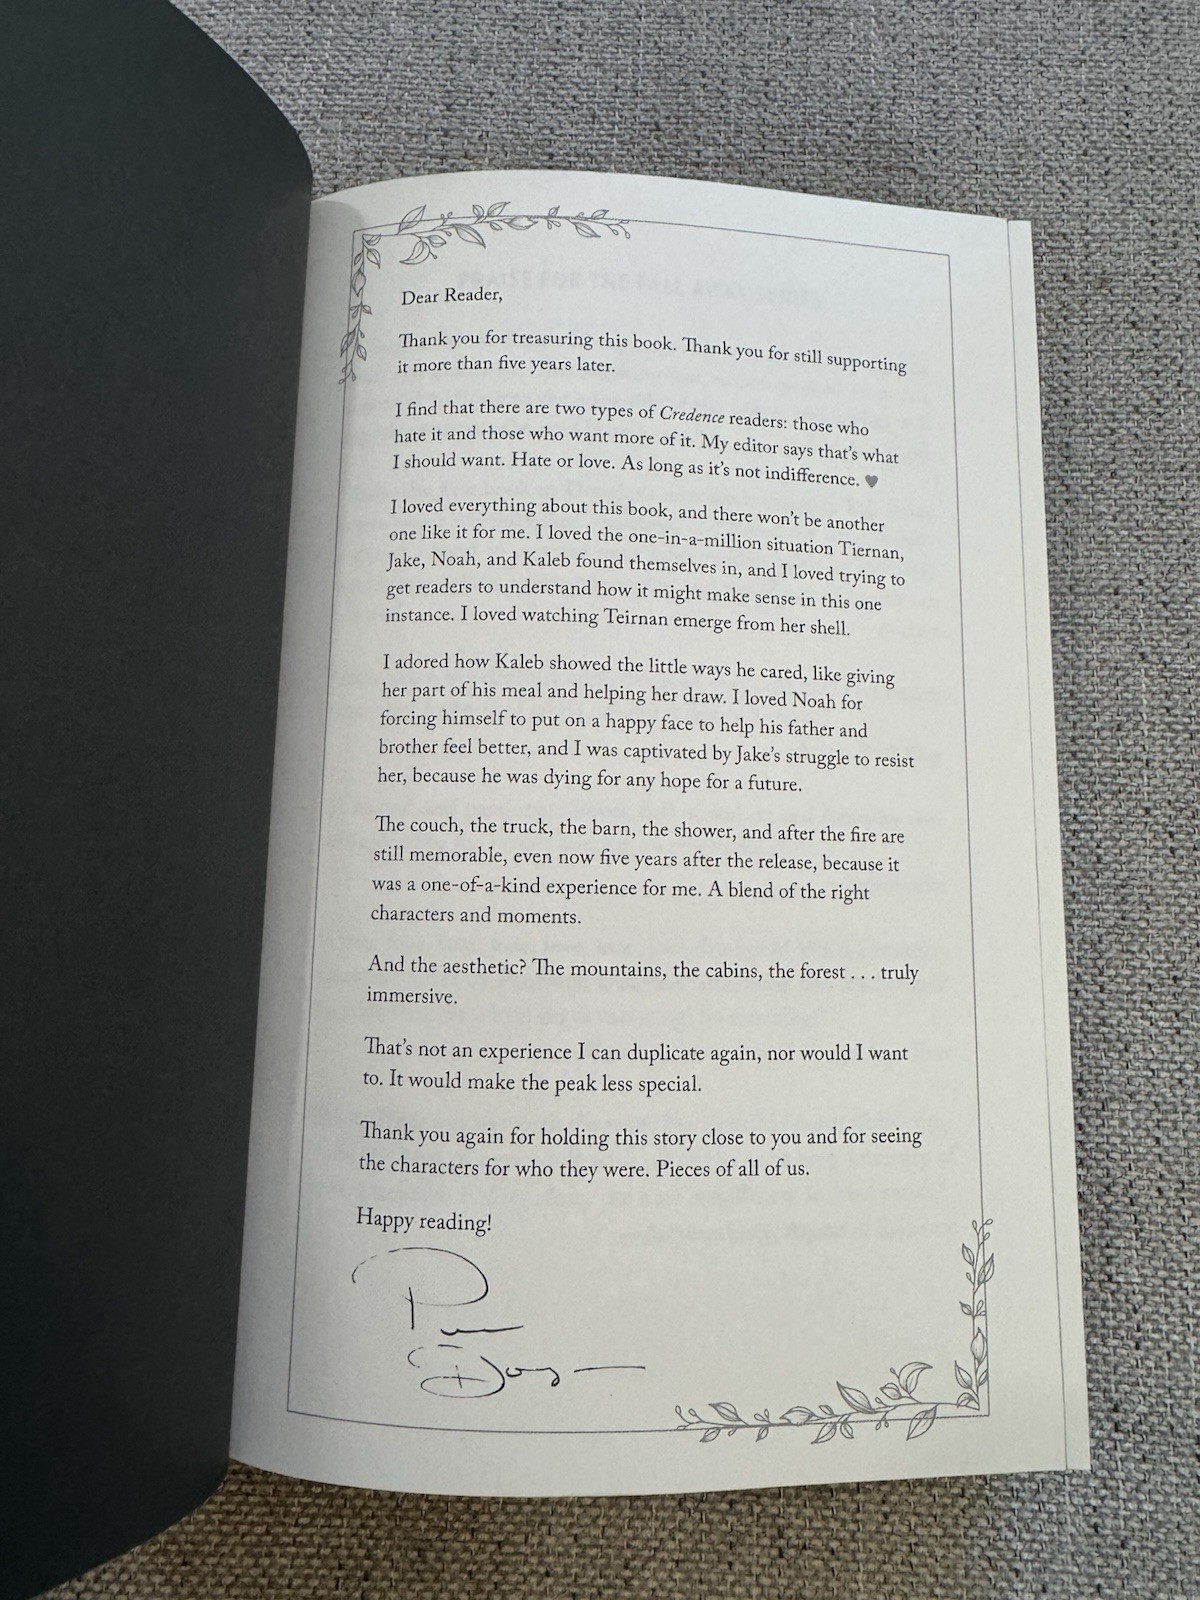 Dear Reader,
Thank you for treasuring this book. Thank you for still supporting
it more than five years later.
I find that there are two types of Credence readers: those who
hate it and those who want more of it. My editor says that's what
I should want. Hate or love. As long as it's not indifference. ♥
I loved everything about this book, and there won't be another
one like it for me. I loved the one-in-a-million situation Tiernan,
Jake, Noah, and Kaleb found themselves in, and I loved trying to
get readers to understand how it might make sense in this one
instance. I loved watching Teirnan emerge from her shell.
I adored how Kaleb showed the little ways he cared, like giving
her part of his meal and helping her draw. I loved Noah for
forcing himself to put on a happy face to help his father and
brother feel better, and I was captivated by Jake's struggle to resist
her, because he was dying for any hope for a future.
The couch, the truck, the barn, the shower, and after the fire are
still memorable, even now five years after the release, because it
was a one-of-a-kind experience for me. A blend of the right
characters and moments.
And the aesthetic? The mountains, the cabins, the forest . . . truly
immersive.
That's not an experience I can duplicate again, nor would I want
to. It would make the peak less special.
Thank you again for holding this story close to you and for seeing
the characters for who they were. Pieces of all of us.
Happy reading!